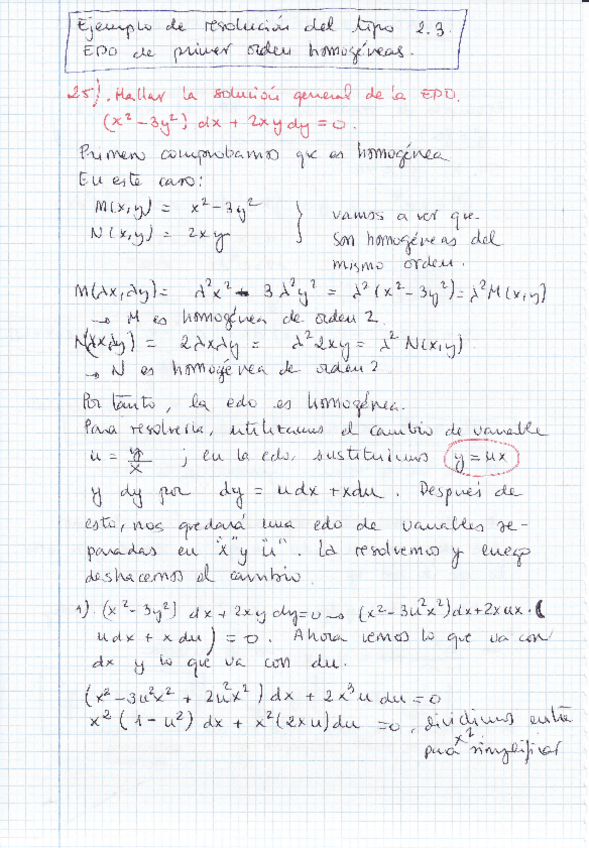 Ejemplo de resolución del tipo 2.3.
EDO de primer orden homogéneas.
25). Hallar la solución general de la EDO.
(x² - 3y²) dx + 2xy dy = 0.
Primero comprobamos que es homogénea
En este caso:
M(x,y) = x² - 3y²
N(x,y) = 2xy
} vamos a ver que
son homogéneas del
mismo orden.
M(λx,λy) = λ²x² - 3λ²y² = λ²(x² - 3y²) = λ²M(x,y)
→ M es homogénea de orden 2.
N(λx,λy) = 2λxλy = λ²2xy = λ²N(x,y)
→ N es homogénea de orden 2
Por tanto, la edo es homogénea.
Para resolverla, utilizamos el cambio de variable
u = y/x ; en la edo, sustituimos y = ux
y dy por dy = udx + xdu. Después de
esto, nos quedará una edo de variables se-
paradas en "x" y "u". La resolvemos y luego
deshacemos el cambio.
1). (x² - 3y²) dx + 2xy dy = 0 → (x² - 3u²x²)dx + 2xux · (
udx + xdu) = 0. Ahora vemos lo que va con
dx y lo que va con du.
(x² - 3u²x² + 2u²x²) dx + 2x³u du = 0
x² (1 - u²) dx + x²(2xu)du = 0, dividimos entre
x² para simplificar